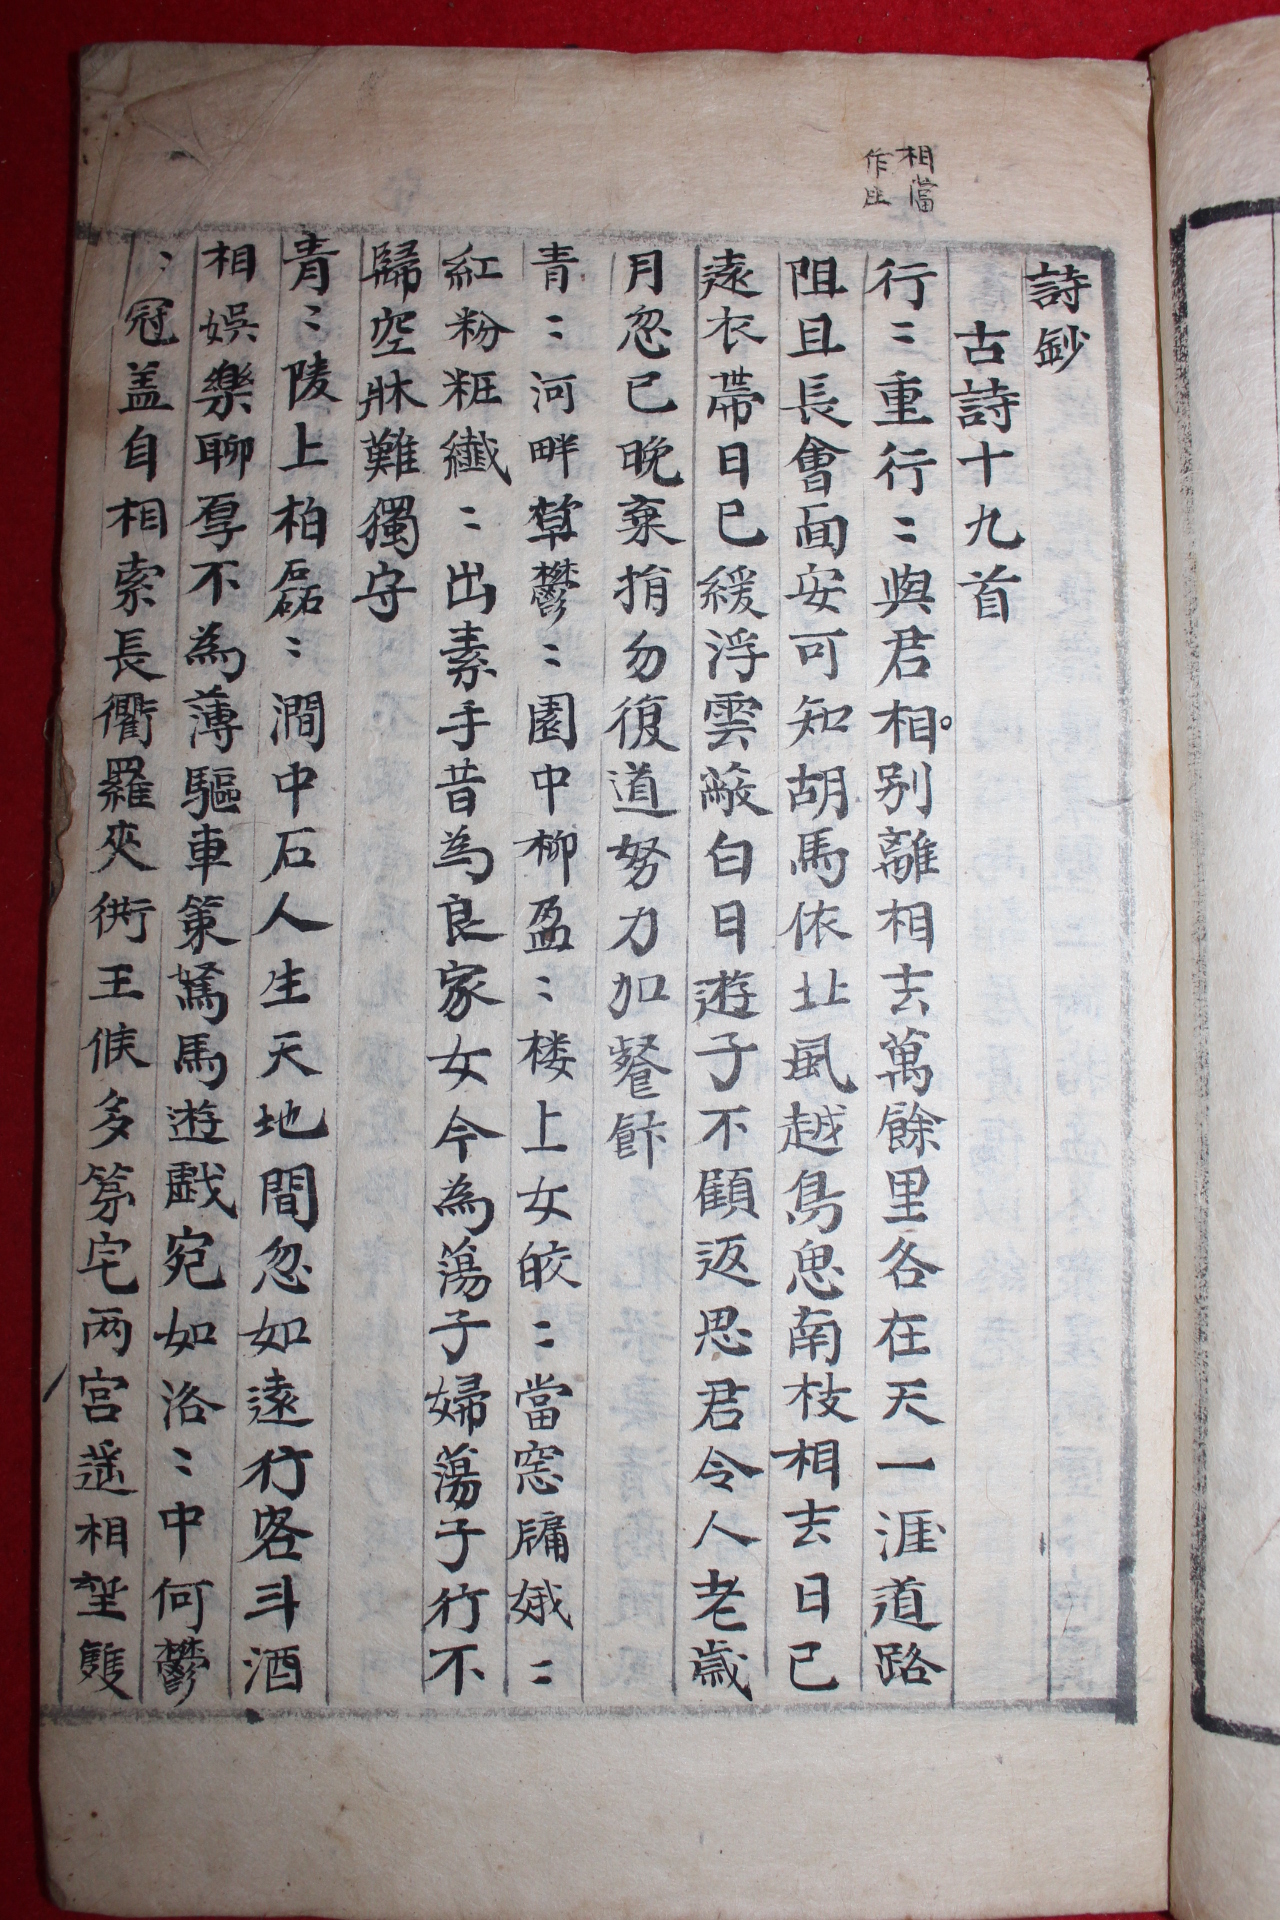 相當
作生
詩鈔
古詩十九首
行〻重行〻與君相別離相去萬餘里各在天一涯道路
阻且長會面安可知胡馬依北風越鳥思南枝相去日已
遠衣帶日已緩浮雲蔽白日遊子不顧返思君令人老歲
月忽已晚棄捐勿復道努力加餐飰
青〻河畔草鬱〻園中柳盈〻楼上女皎〻當窓牖娥〻
紅粉粧纖〻出素手昔為良家女今為蕩子婦蕩子行不
歸空牀難獨守
青〻陵上柏磊〻澗中石人生天地間忽如遠行客斗酒
相娯樂聊厚不為薄驅車策駑馬遊戯宛如洛〻中何鬱
〻冠盖自相索長衢羅夾衖王侯多第宅两宮遥相望雙